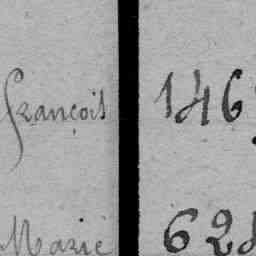 françois 146
Marie 62